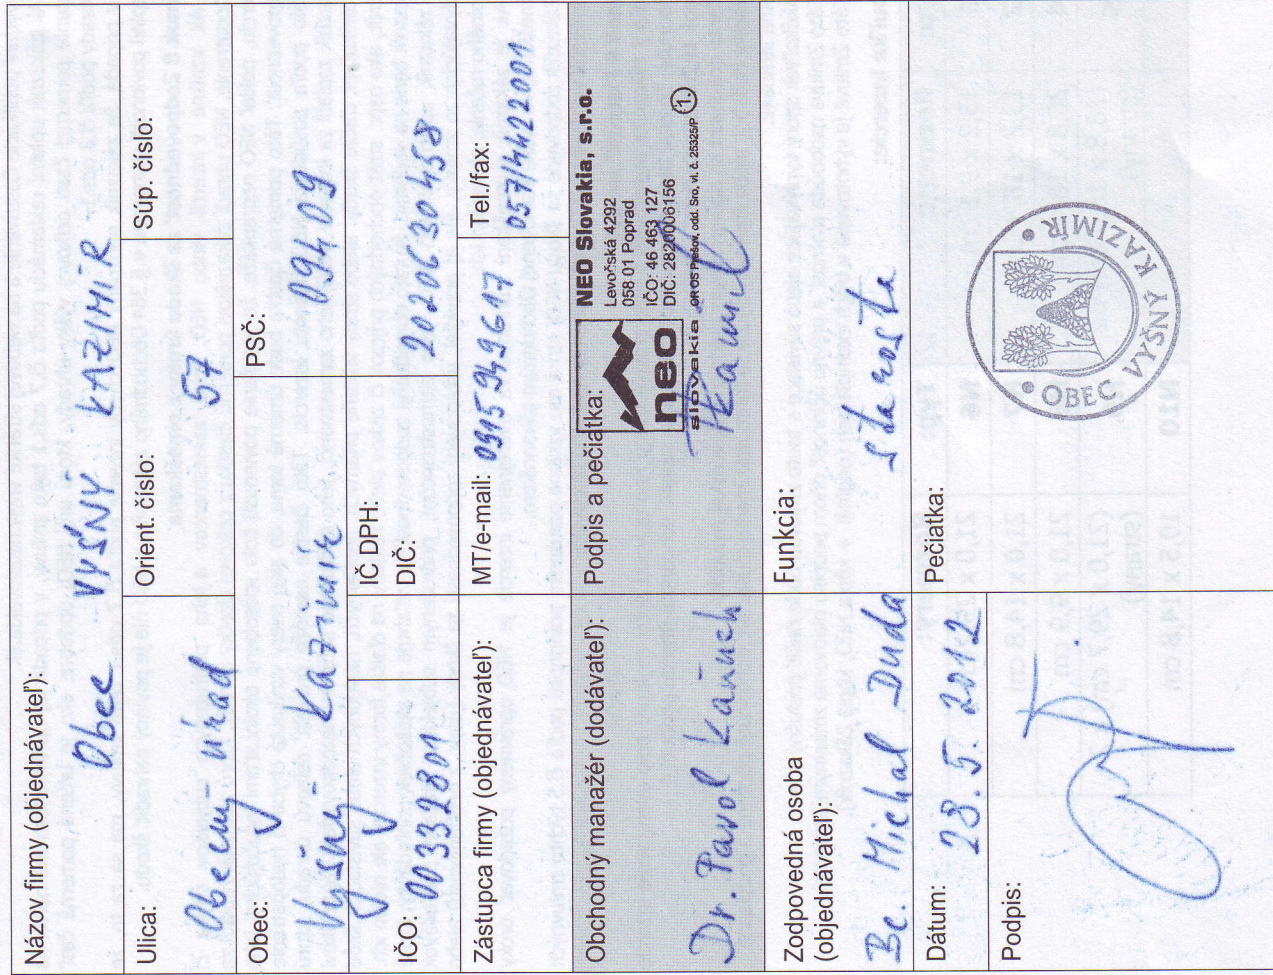 Názov firmy (objednávateľ):
Obec VYŠNÝ KAZIMÍR
Ulica:
Obecný úrad
Orient. číslo:
57
Súp. číslo:
Obec:
Vyšný - Kazimír
PSČ:
09409
IČO: 00332801
IČ DPH:
DIČ: 2020630458
Zástupca firmy (objednávateľ):
MT/e-mail: 0915949617
Tel./fax:
057/4422001
Obchodný manažér (dodávateľ):
Dr. Pavol Kaňuch
Podpis a pečiatka:
neo
slovakia
NEO Slovakia, s.r.o.
Levočská 4292
058 01 Poprad
IČO: 46 463 127
DIČ: 2820006156
OR OS Prešov, odd. Sro, vl. č. 25325/P
1.
Zodpovedná osoba
(objednávateľ):
Bc. Michal Duda
Funkcia:
starosta
Dátum:
28. 5. 2012
Pečiatka:
OBEC VYŠNÝ KAZIMÍR
Podpis: